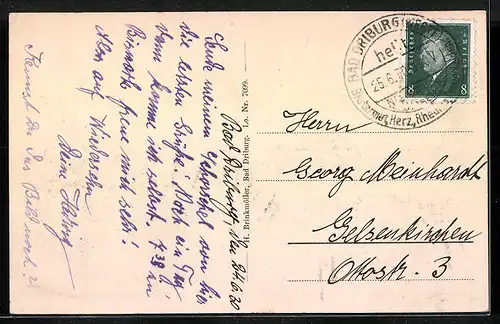 Bad Driburg, den 24.6.30
Sende meinem von hier
die ersten Grüße! Noch ein Tag,
dann komme ich selbst. 7.38 in
Bismark, freue mich sehr!
Also auf Wiedersehn
Deine
Kennst du das Bildwerk?
H. Brinkmöller, Bad Driburg. Lo. Nr. 7009.
BAD DRIBURG
25.6.30
Herz, Rheuma
8 8
Herrn
Georg Meinhardt
Gelsenkirchen
Ottostr. 3